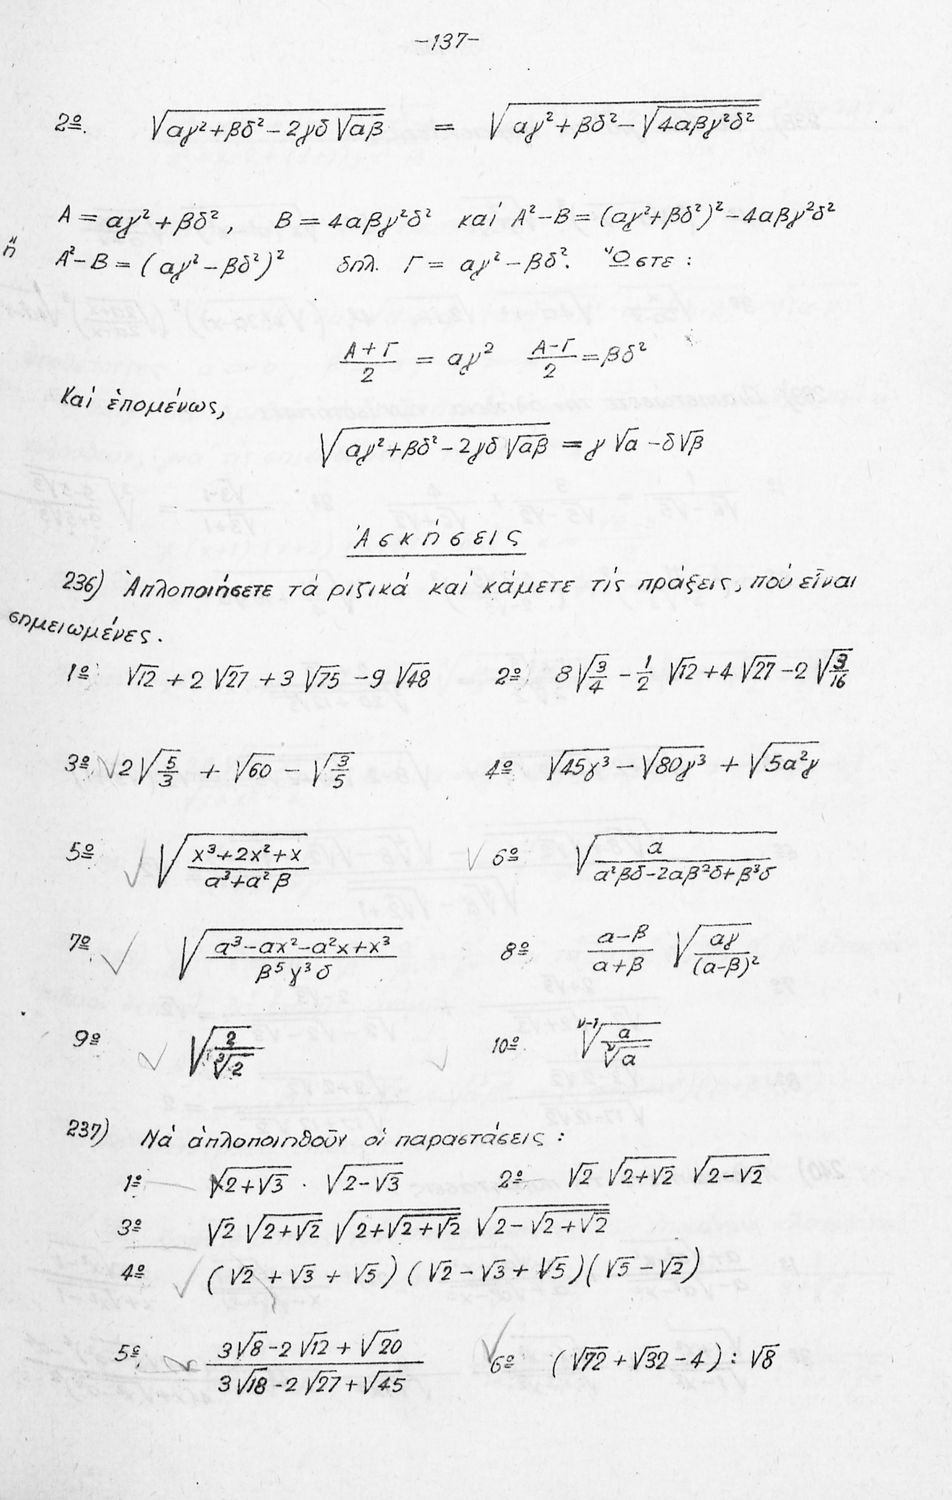 -137-
2º. √(αγ²+βδ²-2γδ√(αβ)) = √(αγ²+βδ²-√(4αβγ²δ²))
Α = αγ²+βδ², Β = 4αβγ²δ² καί Α²-Β = (αγ²+βδ²)²-4αβγ²δ²
ἤ Α²-Β = (αγ²-βδ²)² δηλ. Γ = αγ²-βδ². Ὥστε:
(Α+Γ)/2 = αγ² (Α-Γ)/2 = βδ²
Καί ἑπομένως,
√(αγ²+βδ²-2γδ√(αβ)) = γ√α - δ√β
Ἀσκήσεις
236) Ἁπλοποιήσετε τά ριζικά καί κάμετε τίς πράξεις, πού εἶναι
σημειωμένες.
1º √12 + 2√27 + 3√75 - 9√48 2º 8√(3/4) - 1/2 √12 + 4√27 - 2√(3/16)
3º 2√(5/3) + √60 - √(3/5) 4º √(45γ³) - √(80γ³) + √(5α²γ)
5º √((x³+2x²+x)/(α³+α²β)) 6º √(α/(α²βδ-2αβ²δ+β³δ))
7º √((α³-αx²-α²x+x³)/(β⁵γ³δ)) 8º (α-β)/(α+β) √(αγ/(α-β)²)
9º √(2/∛2) 10º ᵛ⁻¹√(α/ᵛ√α)
237) Νά ἁπλοποιηθοῦν οἱ παραστάσεις:
1º √(2+√3) · √(2-√3) 2º √2 √(2+√2) √(2-√2)
3º √2 √(2+√2) √(2+√(2+√2)) √(2-√(2+√2))
4º (√2 + √3 + √5)(√2 - √3 + √5)(√5 - √2)
5º (3√8 - 2√12 + √20)/(3√18 - 2√27 + √45) 6º (√72 + √32 - 4) : √8